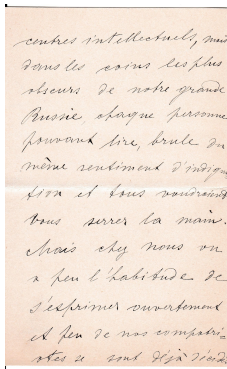 centres intellectuels, mais
dans les coins les plus
obscurs de notre grande
Russie, chaque personne
pouvant lire, brule du
même sentiment d'indigna
tion et tous voudraient
vous serrer la main.
Mais chez nous on
a peu l'habitude de
s'exprimer ouvertement
et peu de nos compatri=
otes se sont déjà décidé